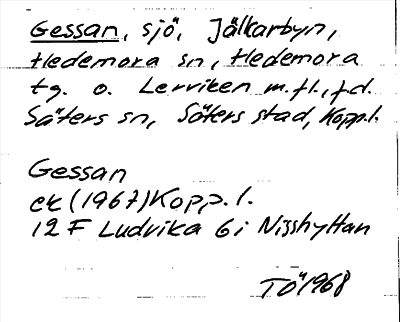 Gessan, sjö, Jälkarbyn,
Hedemora sn, Hedemora
tg. o. Lerviken m.fl., f.d.
Säters sn, Säters stad, Kopp.l.
Gessan
ek (1967) Kopp. l.
12 F Ludvika 6i Nisshyttan
TÖ 1968